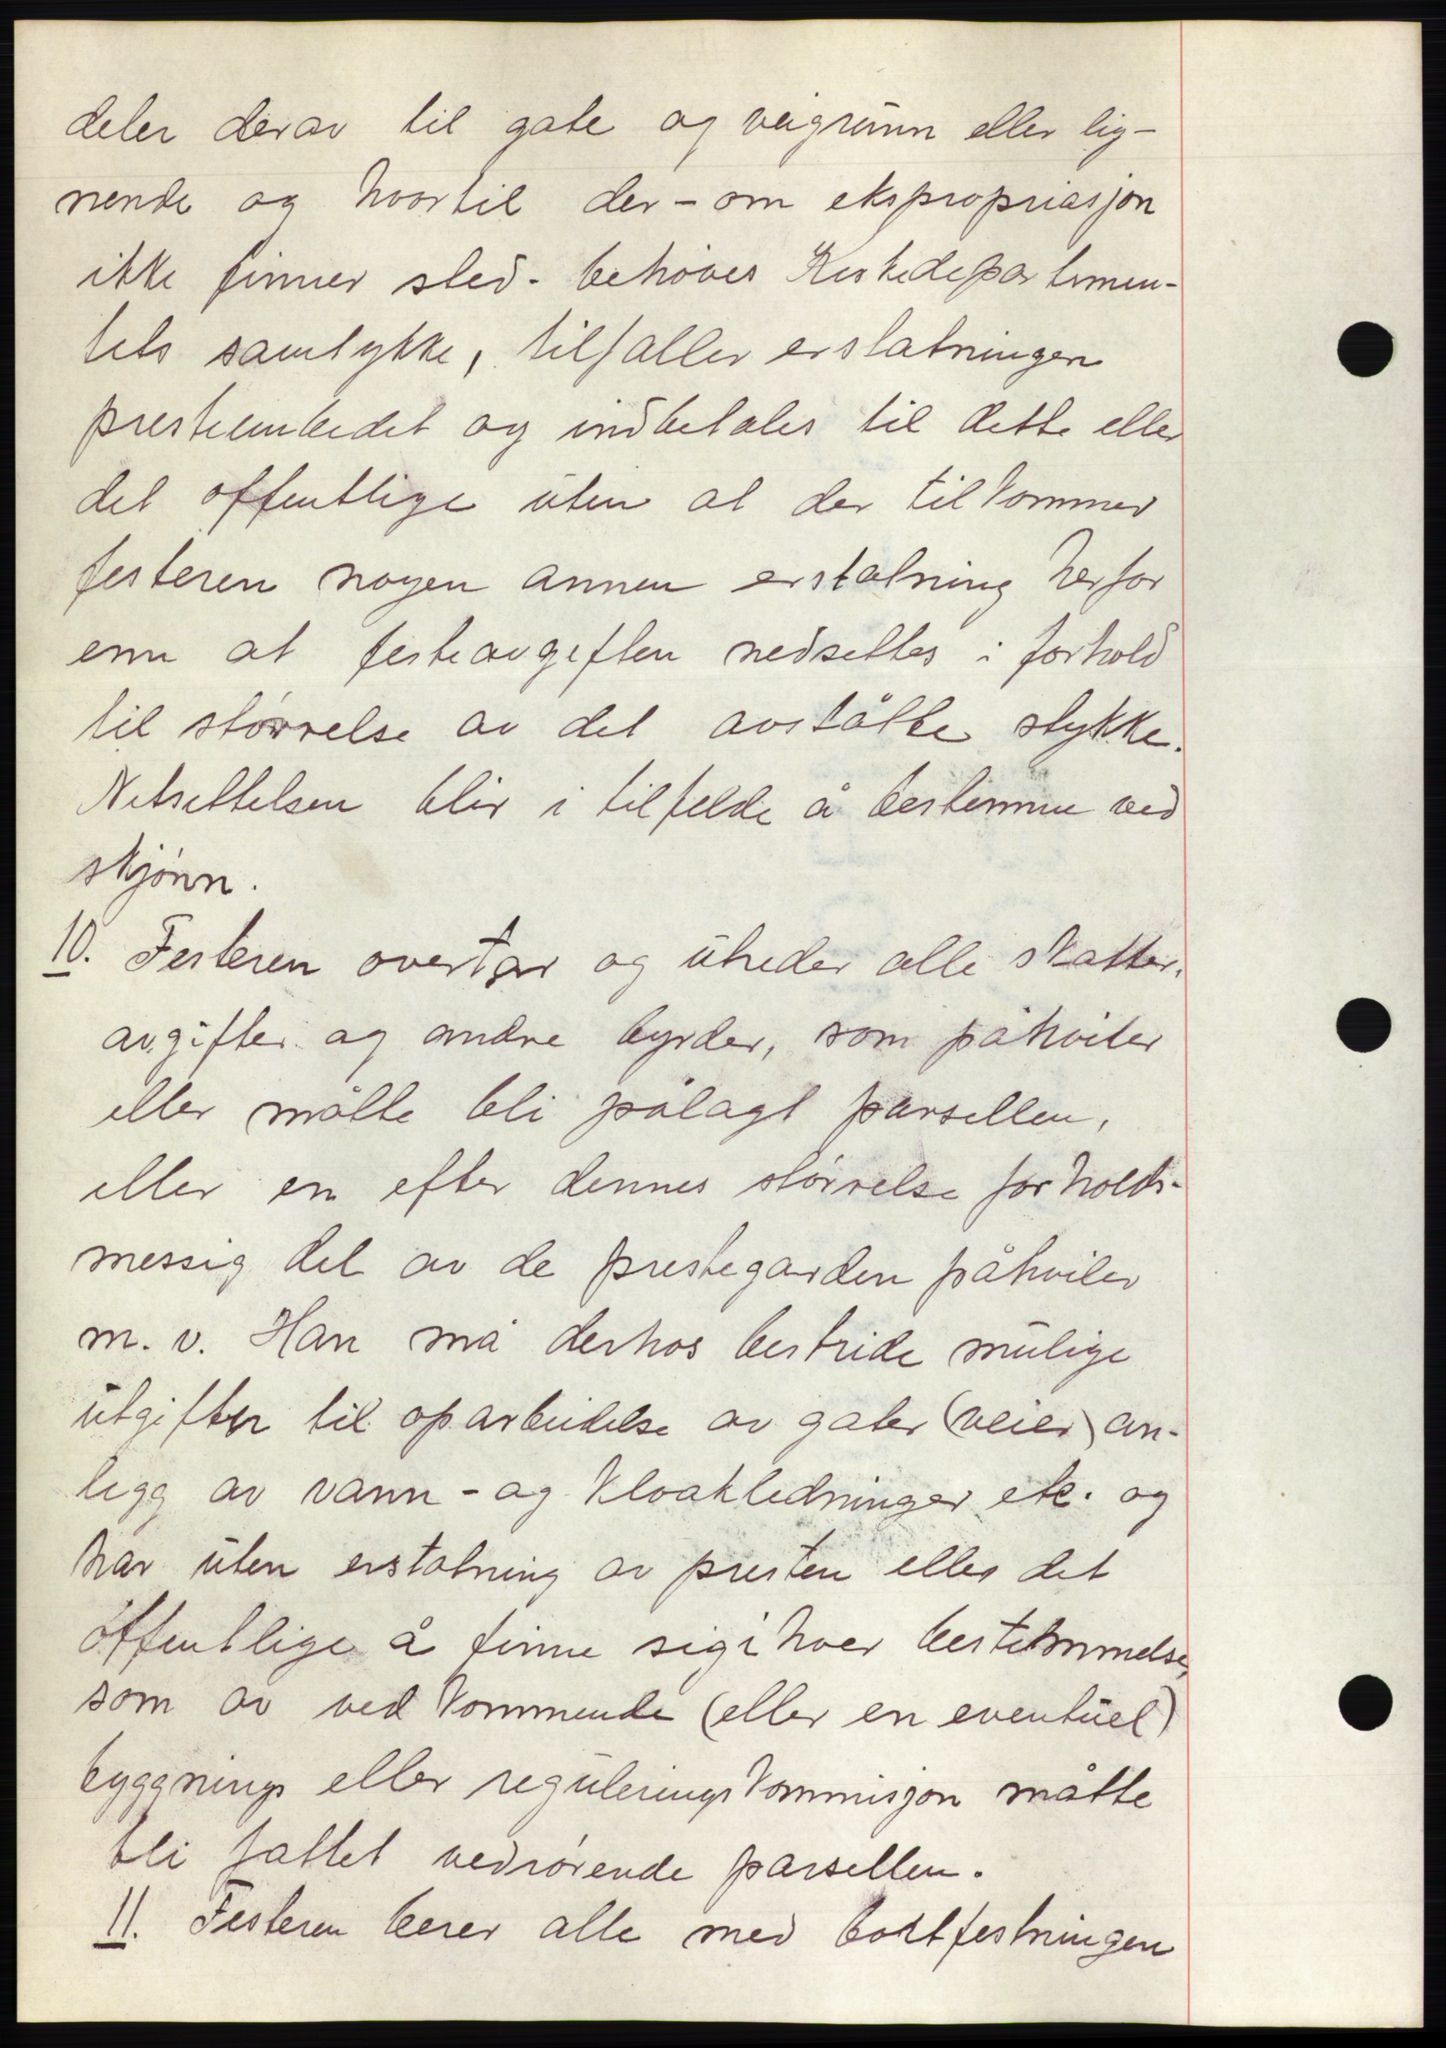 deler derav til gate og veigrunn eller lig-
nende og hvortil der - om ekspropriasjon
ikke finner sted - behøves Kirkedepartemen-
tets samtykke, tilfaller erstatningen
presteembedet og indbetales til dette eller
det offentlige uten at der tilkommer
festeren nogen annen erstatning herfor
enn at festeavgiften nedsettes i forhold
til størrelse av det avståtte stykke.
Netsettelsen blir i tilfelde å bestemme ved
skjønn.
10. Festeren overtar og utreder alle skatter,
avgifter og andre byrder, som påhviler
eller måtte bli pålagt parsellen,
eller en efter dennes størrelse forholds-
messig del av de prestegarden påhviler
m. v. Han må derhos bestride mulige
utgifter til oparbeidelse av gater (veier) an-
legg av vann- og kloakledninger etc. og
har uten erstatning av presten eller det
offentlige å finne sig i hver bestemmelse,
som av vedkommende (eller en eventuel)
byggnings eller reguleringskommisjon måtte
bli fattet vedrørende parsellen.
11. Festeren berer alle med bortfestningen